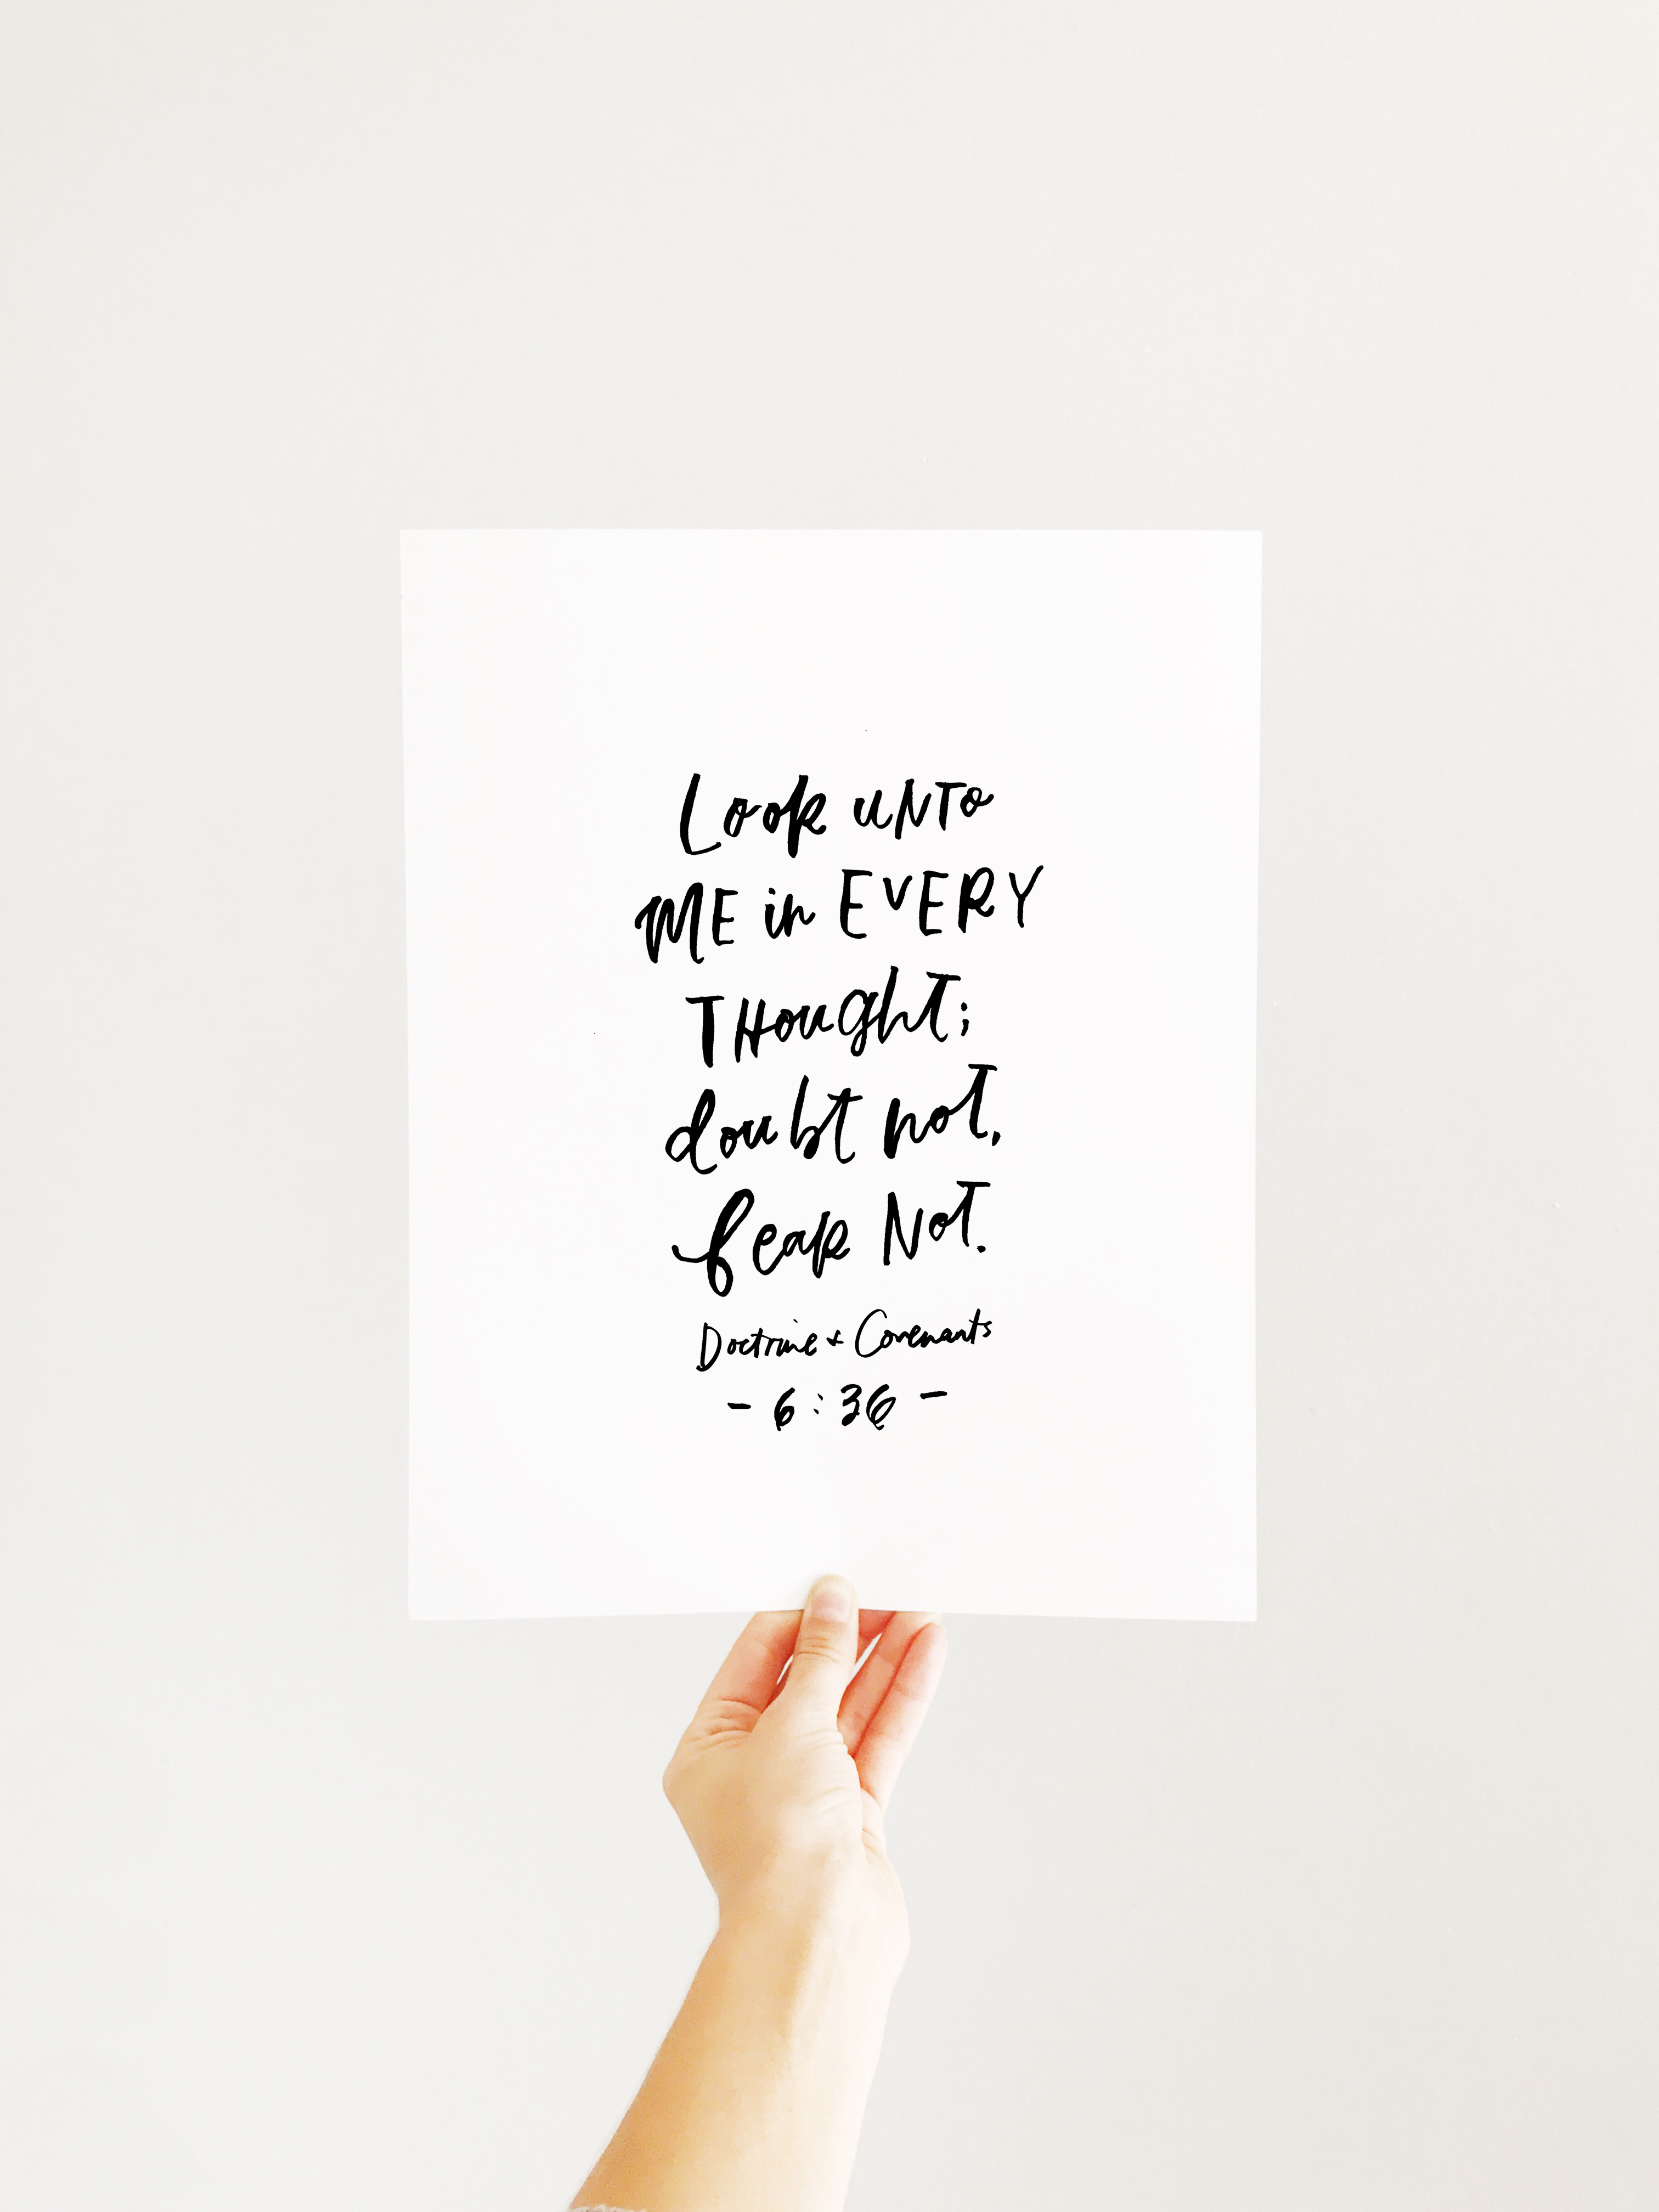 Look UNTO
ME in EVERY
THought;
doubt not,
fear Not.
Doctrine + Covenants
- 6:36 -